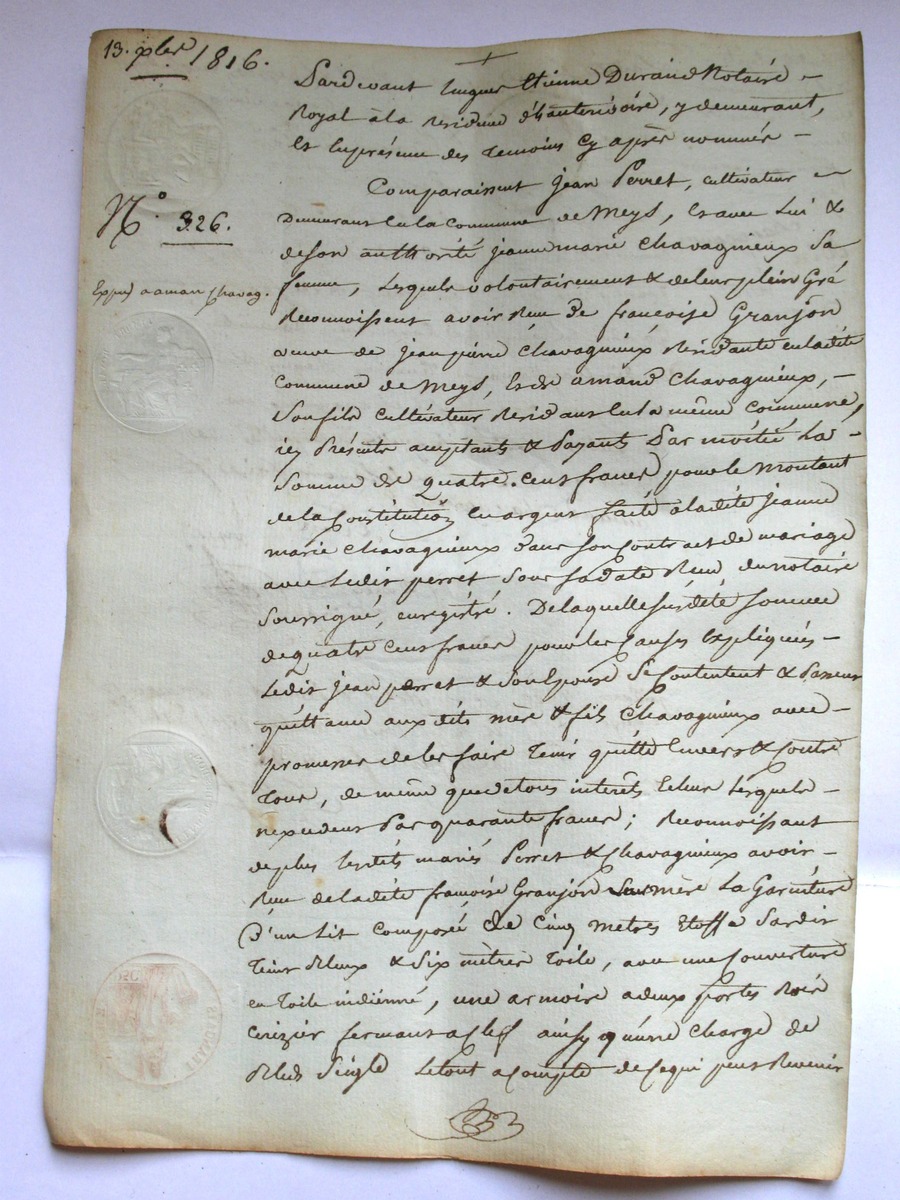 13. xbre 1816.
Pardevant hugues Etienne Durand Notaire
Royal à la Residence d'hauterivoire, y demeurant,
Et En présence des Temoins Cy après nommés
N.º 326.
Comparaissent jean Perret, cultivateur
Demeurant En la Commune de Meys, Et avec Lui &
de son authorité jeanne marie Chavagnieux Sa
femme, Lesquels volontairement & de leur plein Gré
Exped a aman Chavag.
Reconnoissent avoir Reçu de francoise Granjon
veuve de jean pierre Chavagnieux Résidante en ladite
Commune de Meys, Et de amand Chavagnieux,
Son fils cultivateur Residant En la même Commune,
icy Présents acceptants & Payants Par moitié La
Somme de Quatre Cens francs pour le montant
de la Constitution En argent faite à ladite Jeanne
marie Chavagnieux dans son Contract de mariage
avec Ledit perret Sous Sa date Reçu du notaire
Soussigné, enregistré. De laquelle susdite somme
de quatre Cens francs pour les Causes Expliquées
Ledit jean perret & Son Epouse Se Contentent & Passent
quittance aux dits mère & fils Chavagnieux avec
promesse de les faire Tenir quitte Envers & Contre
Tous, de même que de tous interêts Lesquels
n'excedent Pas quarante francs; Reconnoissant
de plus lesdits mariés Perret & Chavagnieux avoir
Reçu de ladite françoise Granjon Leur mère La Garniture
D'un Lit Composé de Cinq metres Etoffe Sardis
Teint Bleux & Six mètres Toile, avec une Couverture
en Toile indienne, une armoire a deux portes Bois
Cerizier fermant a Clef ainsy qu'une Charge de
Bled Seigle Le tout a Compte de Ce qui peut Revenir